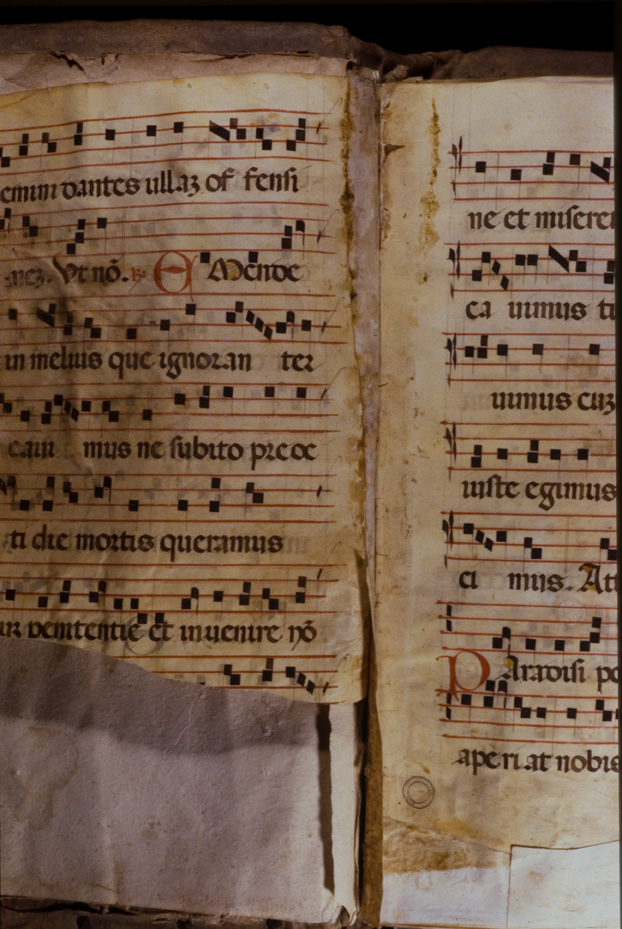 dantes ullaz of fensi
nez. Vt nõ. ꝶ EMende
in melius que ignoran ter
caui mus ne subito preoc
ti die mortis queramus
penitentie et inuenire nõ
ne et misere
ca uimus ti
uimus cuz
uiste egimus
ci mus. At
PAradisi po
aperi at nobis